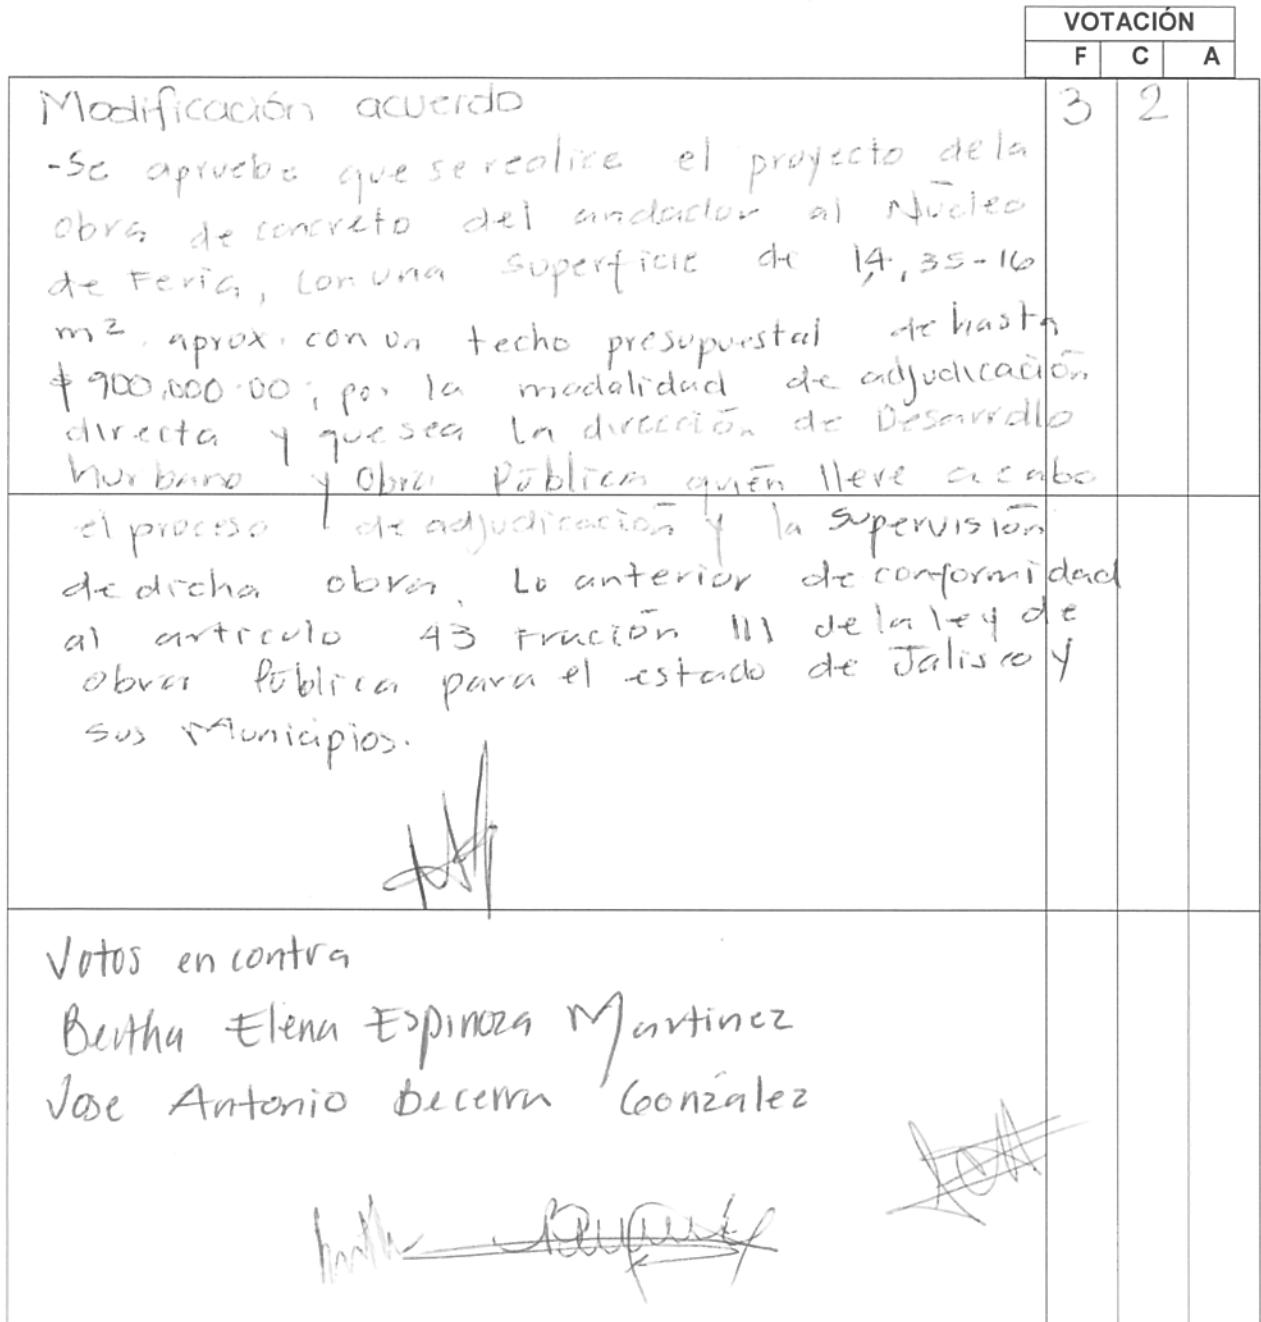 VOTACIÓN
F C A
Modificación acuerdo 3 2
-Se aprueba que se realice el proyecto de la
obra de concreto del andador al Núcleo
de Feria, con una superficie de 14,35-16
m² aprox. con un techo presupuestal de hasta
$900,000.00; por la modalidad de adjudicación
directa y que sea la dirección de Desarrollo
hurbano y Obra Pública quién lleve a cabo
el proceso de adjudicación y la supervisión
de dicha obra. Lo anterior de conformidad
al articulo 43 Fracción III de la ley de
obra Pública para el estado de Jalisco y
sus Municipios.
Votos en contra
Bertha Elena Espinoza Martinez
Jose Antonio Becerra González